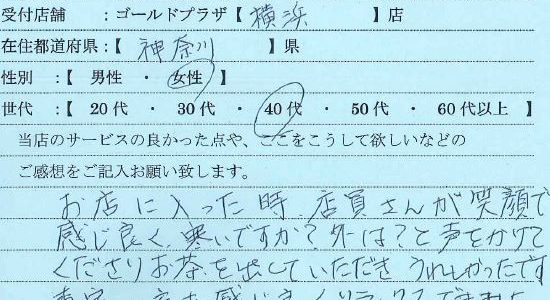 受付店舗　：ゴールドプラザ【 横浜 】店
在住都道府県：【 神奈川 】県
性別　：【 男性 ・ 女性 】
世代　：【 20代 ・ 30代 ・ 40代 ・ 50代 ・ 60代以上 】
当店のサービスの良かった点や、ここをこうして欲しいなどの
ご感想をご記入お願い致します。
お店に入った時、店員さんが笑顔で
感じ良く、寒いですか？外は？と声をかけて
くださりお茶を出していただきうれしかったです